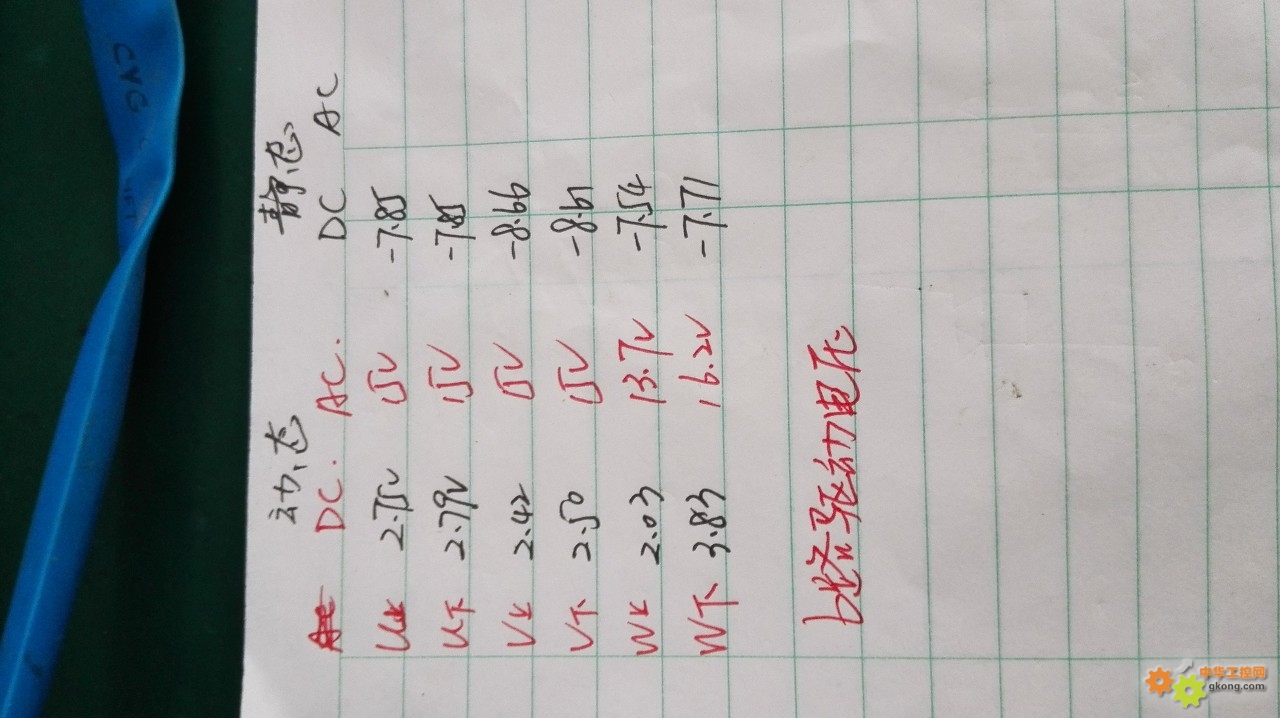 动态 静态
DC. AC. DC AC
U上 2.75V 15V -7.85
U下 2.79V 15V -7.85
V上 2.42 15V -8.66
V下 2.50 15V -8.61
W上 2.03 13.7V -7.54
W下 3.83 16.2V -7.71
6路驱动电压
CYG
中华工控网
gkong.com